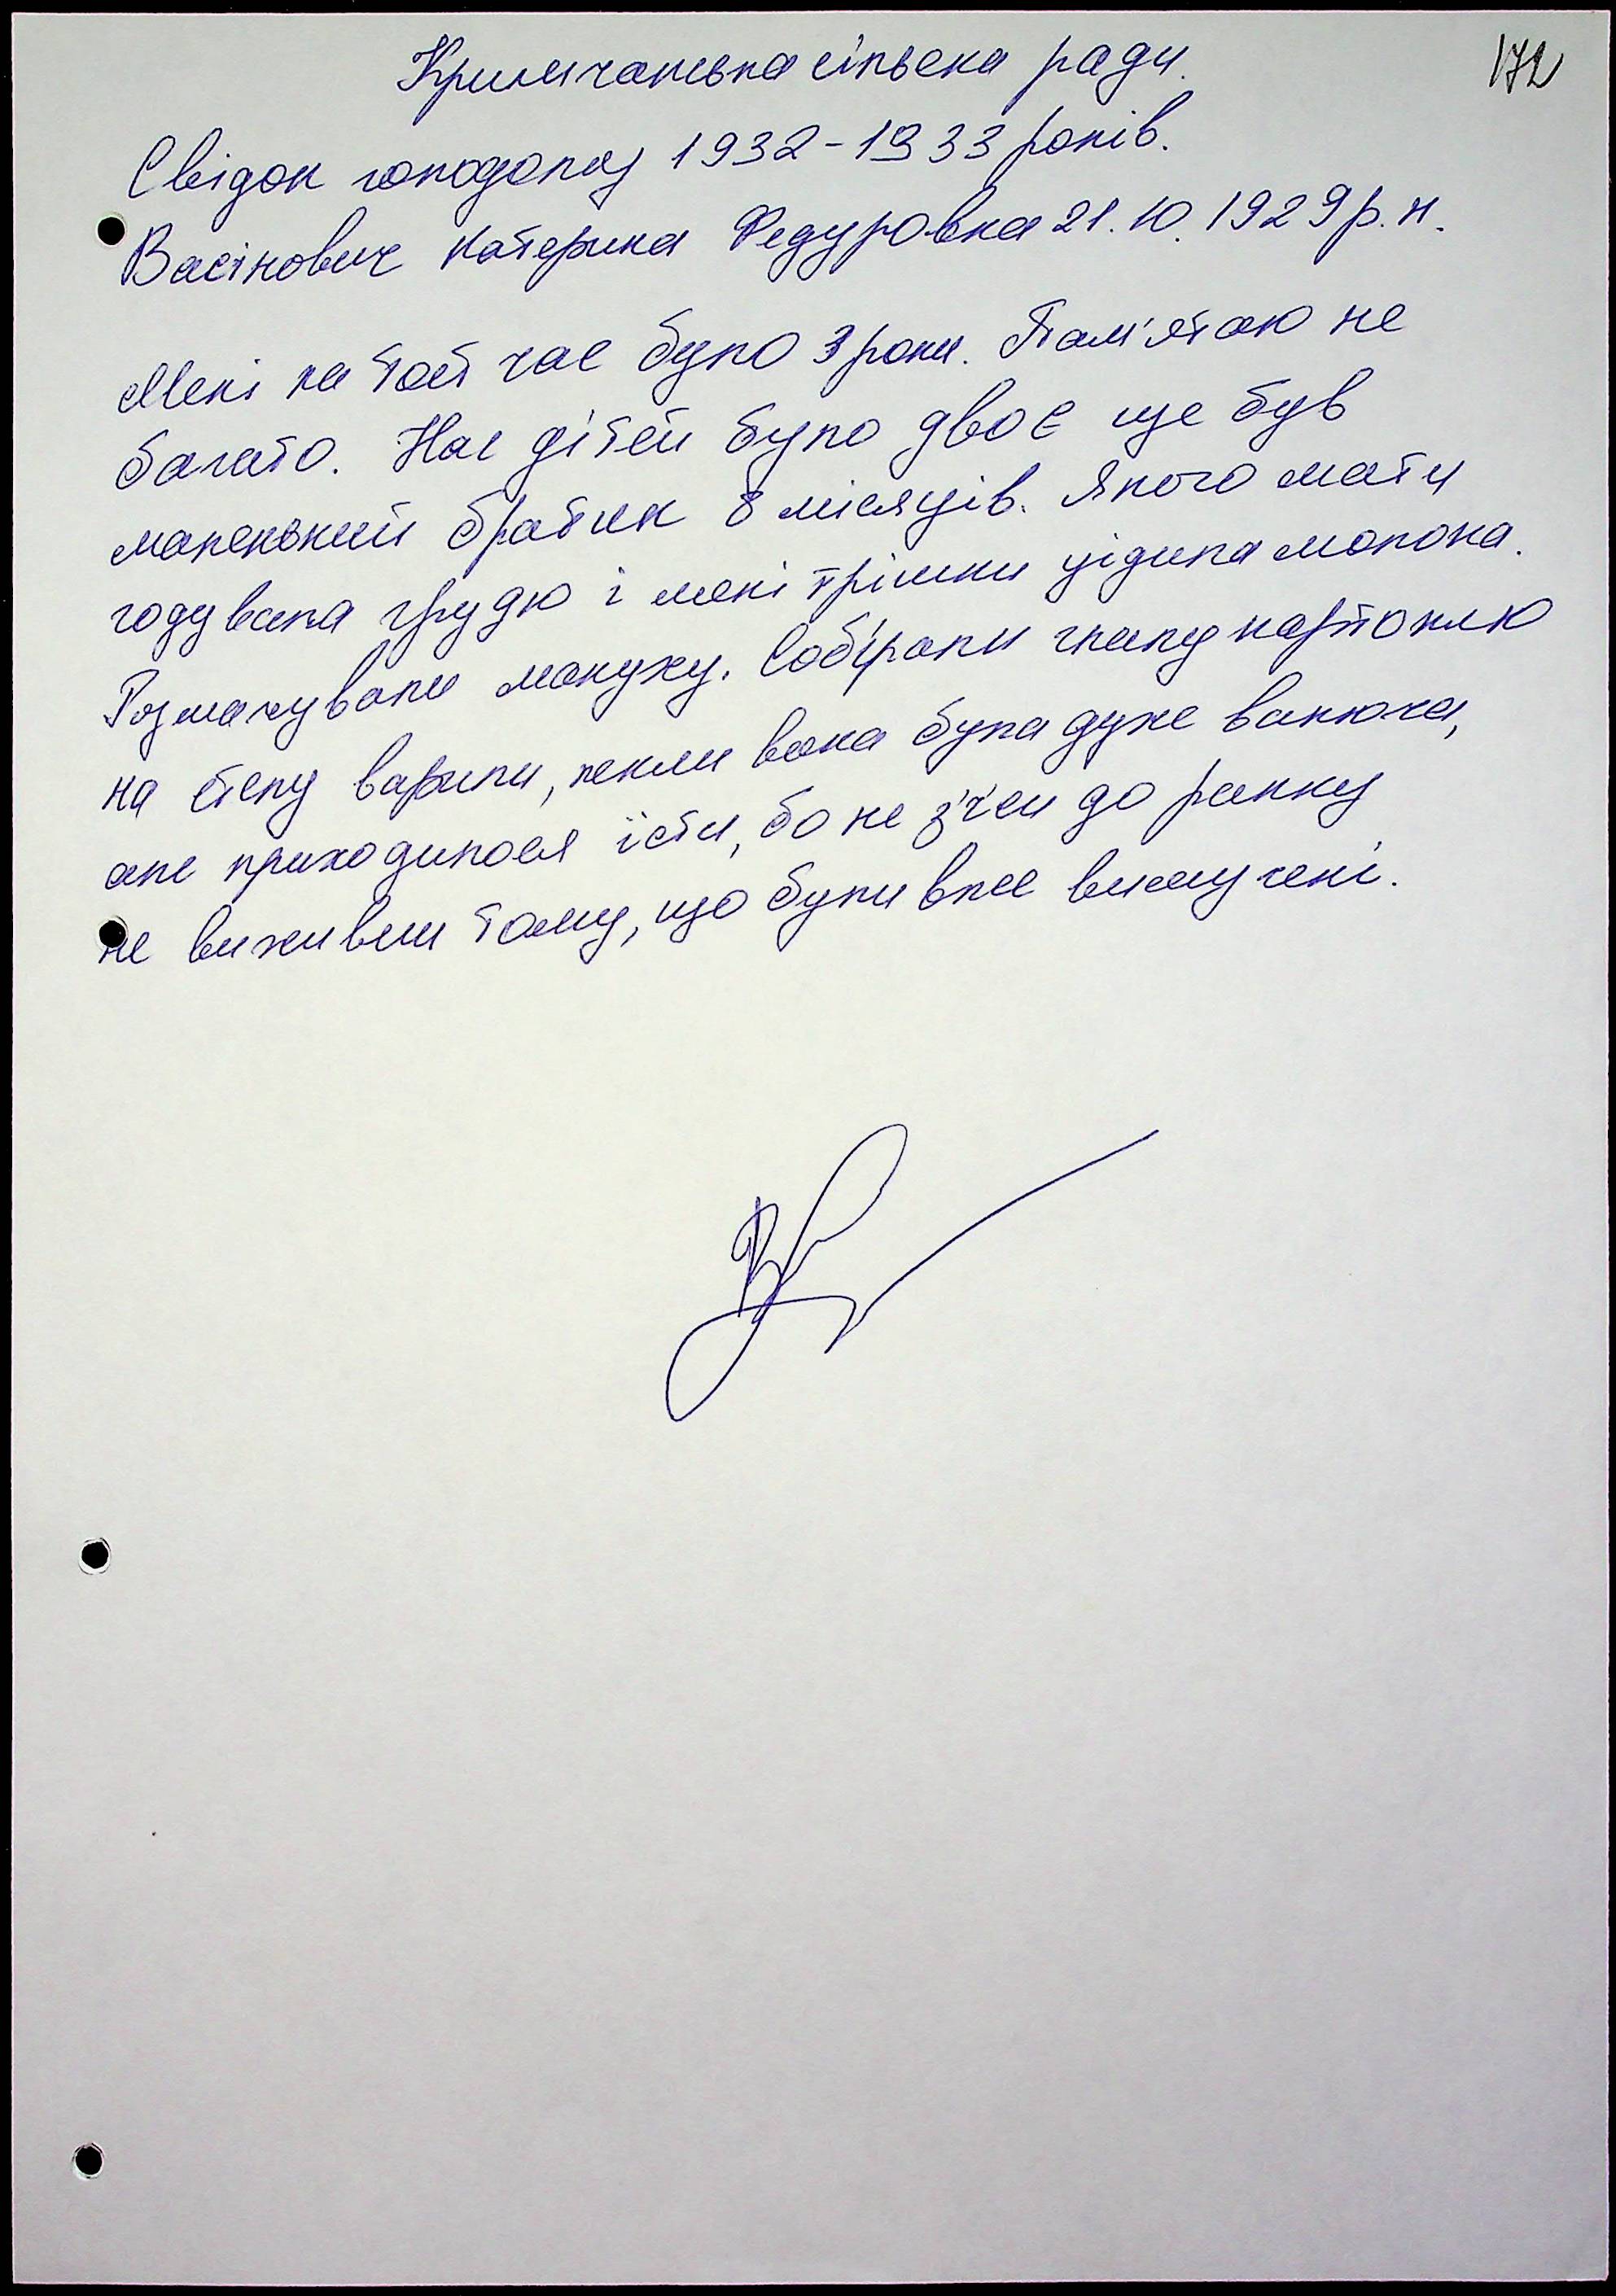 172
Кримчанська сільська ради.
Свідок голодомору 1932-1933 років.
Васінович Катерина Федуровна 21.10.1929р.н.
Мені на той час було 3 роки. Пам'ятаю не
багато. Нас дітей було двоє ще був
маленький братик 8 місяців. Якого мати
годувала груддю і мені трішки цідила молока.
Розмачували макуху. Собірали гнилу картоплю
на степу варили, пекли вона була дуже ванюча,
але приходилося їсти, бо не з'їси до ранку
не виживеш тому, що були всі вимучені.